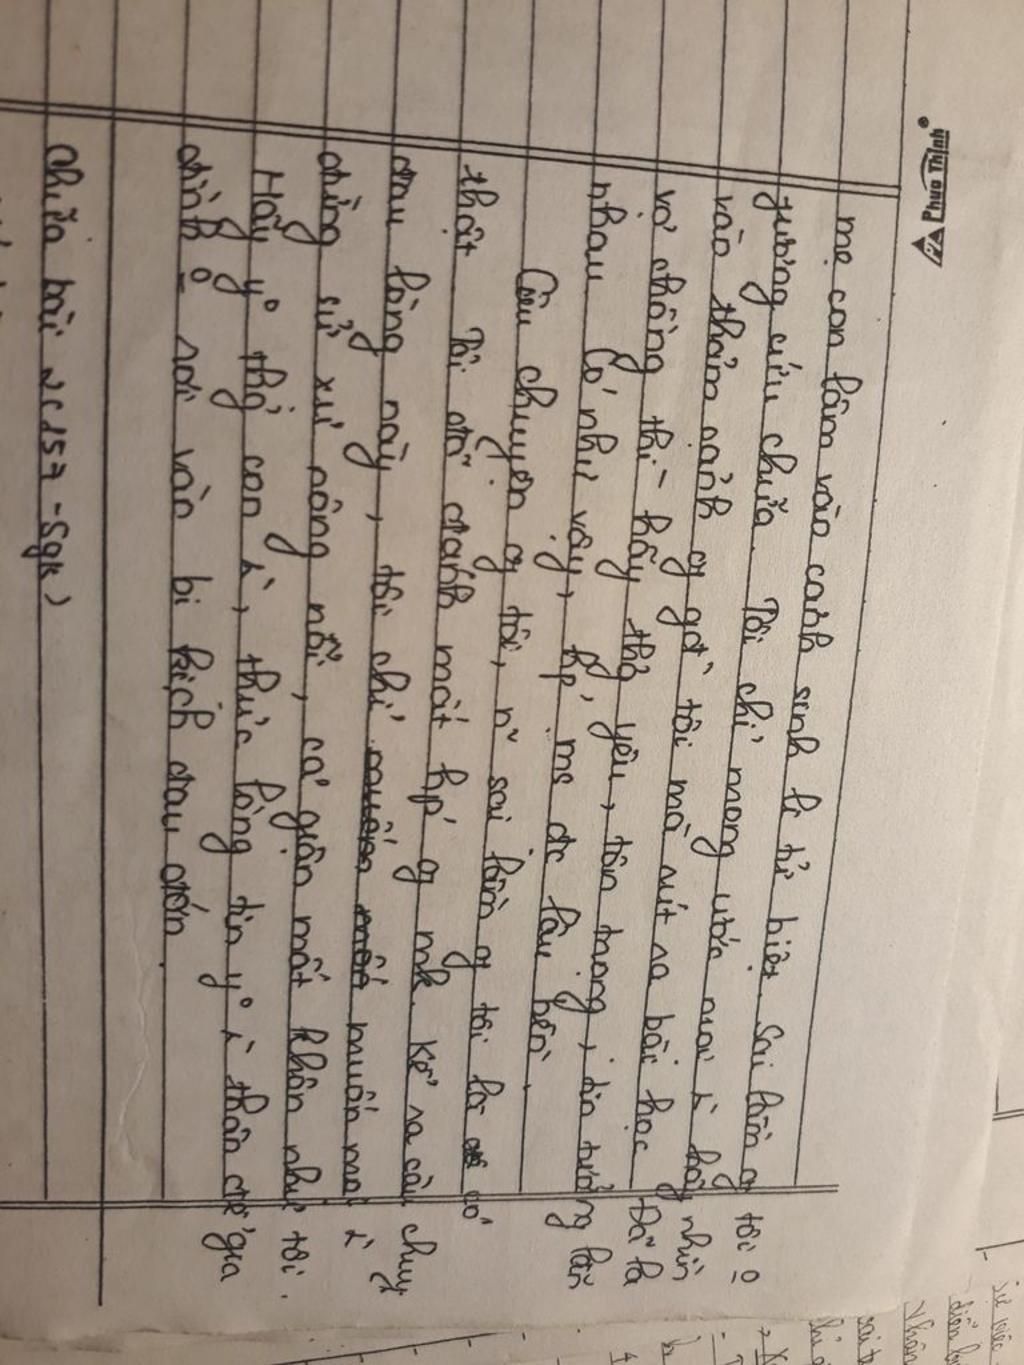 Phuo Thịnh
mẹ con lâm vào cảnh sinh li tử biệt. Sai lầm q tôi o̲
gương cứu chữa. Tôi chỉ mong ước mọi ὶ hãy nhìn
vào thảm cảnh q gđ tôi mà rút ra bài học. Đã là
vợ chồng thì – hãy thg yêu, tôn trọng, tin tưởng lẫn
nhau. Có như vậy, hp' ms đc lâu bền.
Câu chuyện q tôi, n~ sai lầm q tôi là có
thật. Tôi đã đánh mất hp' q mk. Kể ra câu chuyện
đau lòng này, tôi chỉ muốn mọi ὶ
đừng cư xử nông nổi, cả giận mất khôn như tôi.
Hãy y° thg con ὶ, thức lòng tin y° ὶ thân để gia
đình o̲ rơi vào bi kịch đau đớn.
Chữa bài 2 (157 - Sgk)
Sự việc
diễn b
Nhân
sai t